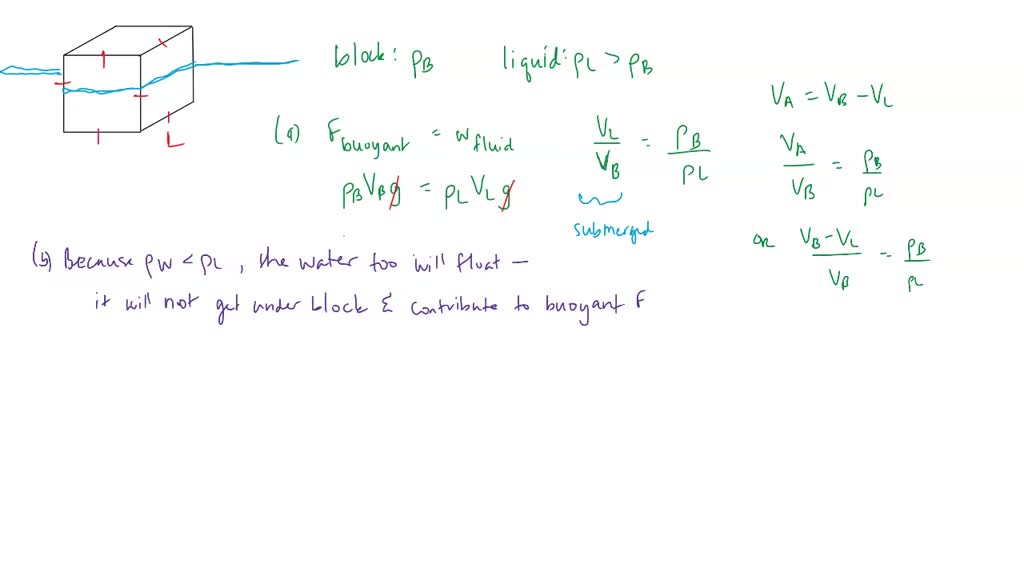 block: ρB liquid: ρL > ρB
L
(a) F buoyant = w fluid
ρB VB g = ρL VL g
VL / VB = ρB / ρL
submerged
VA = VB − VL
VA / VB = ρB / ρL
or (VB − VL) / VB = ρB / ρL
(b) Because ρw < ρL, the water too will float —
it will not get under block & contribute to buoyant F